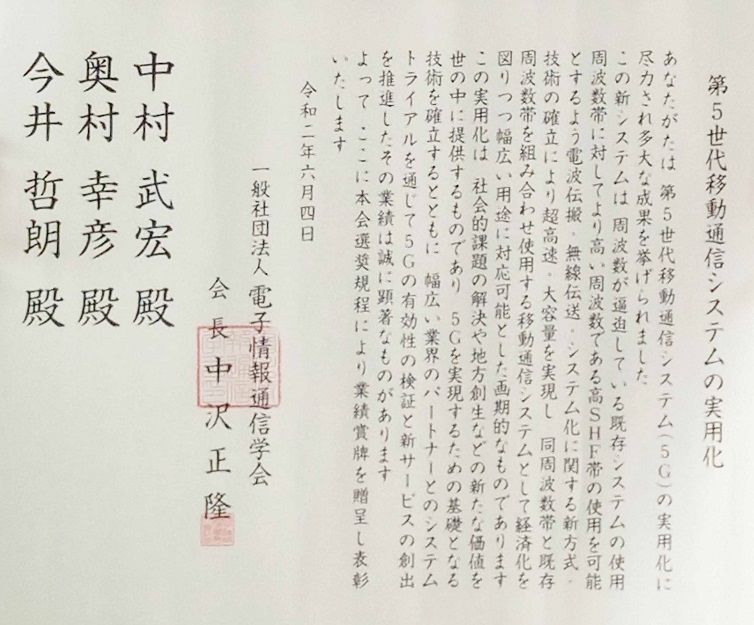 第5世代移動通信システムの実用化
あなたがたは 第5世代移動通信システム(5G)の実用化に
尽力され多大な成果を挙げられました
この新システムは 周波数が逼迫している既存システムの使用
周波数帯に対してより高い周波数である高SHF帯の使用を可能
とするよう電波伝搬・無線伝送・システム化に関する新方式・
技術の確立により超高速・大容量を実現し 同周波数帯と既存
周波数帯を組み合わせ使用する移動通信システムとして経済化を
図りつつ幅広い用途に対応可能とした画期的なものであります
この実用化は 社会的課題の解決や地方創生などの新たな価値を
世の中に提供するものであり 5Gを実現するための基礎となる
技術を確立するとともに 幅広い業界のパートナーとのシステム
トライアルを通じて5Gの有効性の検証と新サービスの創出
を推進したその業績は誠に顕著なものがあります
よって ここに本会選奨規程により業績賞牌を贈呈し表彰
いたします
令和二年六月四日
一般社団法人 電子情報通信学会
会長 中沢正隆
中村 武宏 殿
奥村 幸彦 殿
今井 哲朗 殿